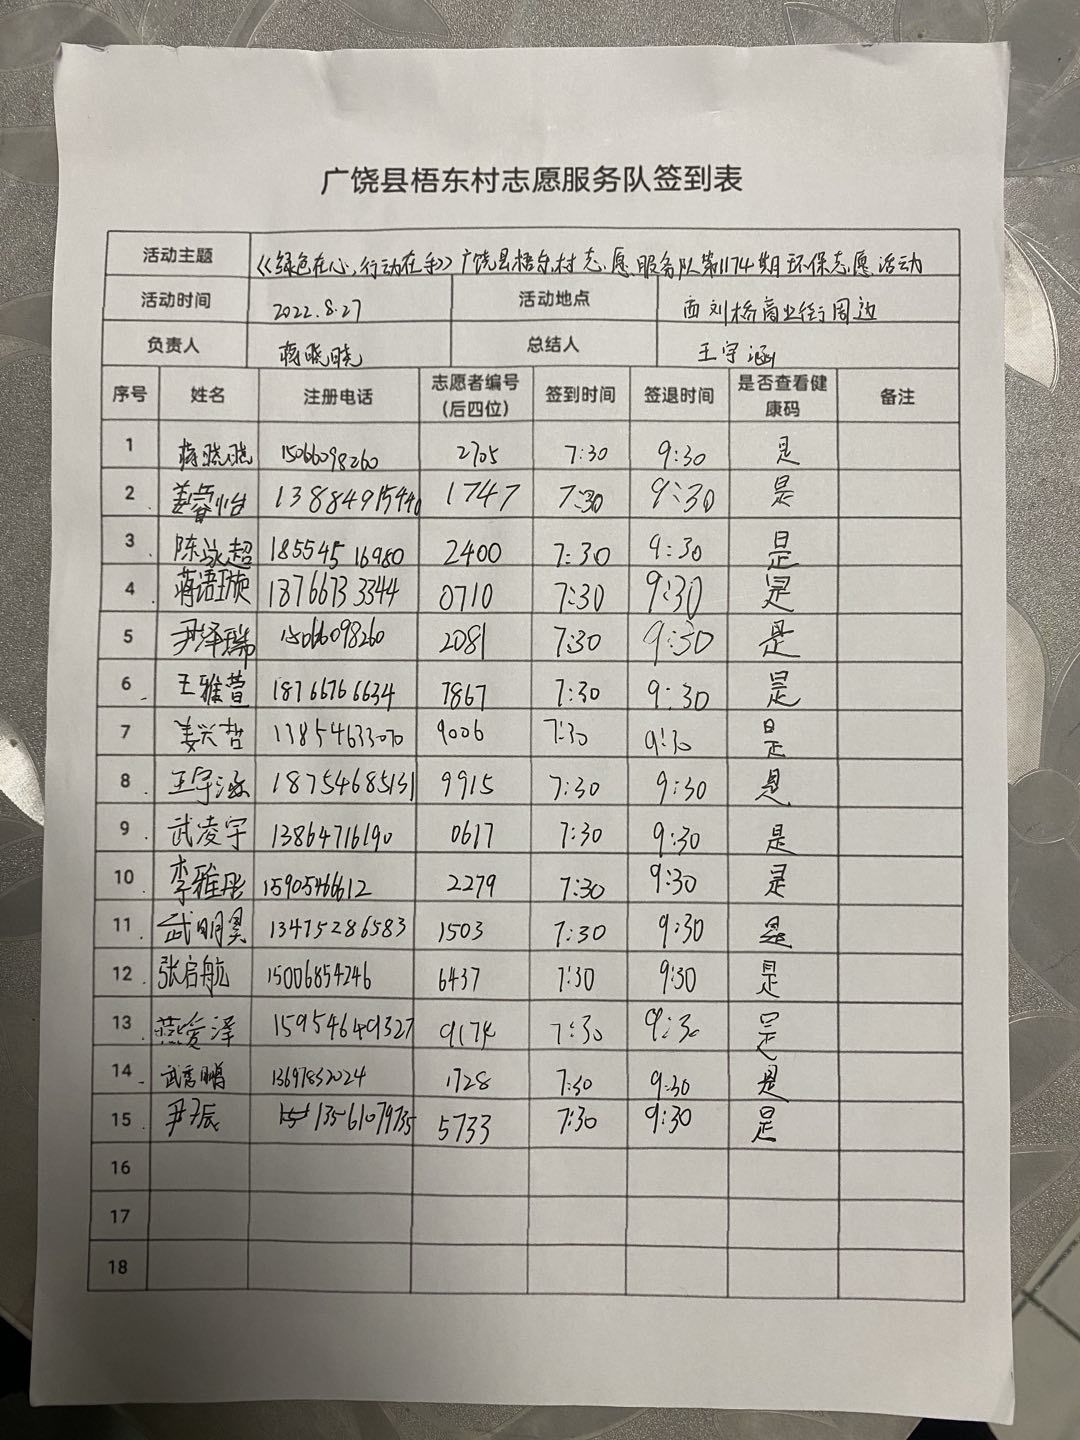 广饶县梧东村志愿服务队签到表
活动主题 《绿色在心,行动在手》广饶县梧东村志愿服务队第1174期环保志愿活动
活动时间 2022.8.27 活动地点 西刘桥商业街周边
负责人 蒋晓晓 总结人 王宇涵
序号 姓名 注册电话 志愿者编号(后四位) 签到时间 签退时间 是否查看健康码 备注
1 蒋晓晓 15066098260 2705 7:30 9:30 是
2 姜睿怡 13884915440 1747 7:30 9:30 是
3 陈泳超 18554516980 2400 7:30 9:30 是
4 蒋语璇 13766733344 0710 7:30 9:30 是
5 尹泽瑞 15066098260 2081 7:30 9:30 是
6 王雅萱 18766766634 7867 7:30 9:30 是
7 姜兴哲 13854633070 9006 7:30 9:30 是
8 王宇涵 18754685131 9915 7:30 9:30 是
9 武凌宇 13864716190 0617 7:30 9:30 是
10 李雅彤 15905466612 2279 7:30 9:30 是
11 武明昊 13475286583 1503 7:30 9:30 是
12 张启航 15006854246 6437 7:30 9:30 是
13 燕爱泽 15954649327 9174 7:30 9:30 是
14 武秀鹏 13697852024 1728 7:30 9:30 是
15 尹子辰 13561079735 5733 7:30 9:30 是
16
17
18